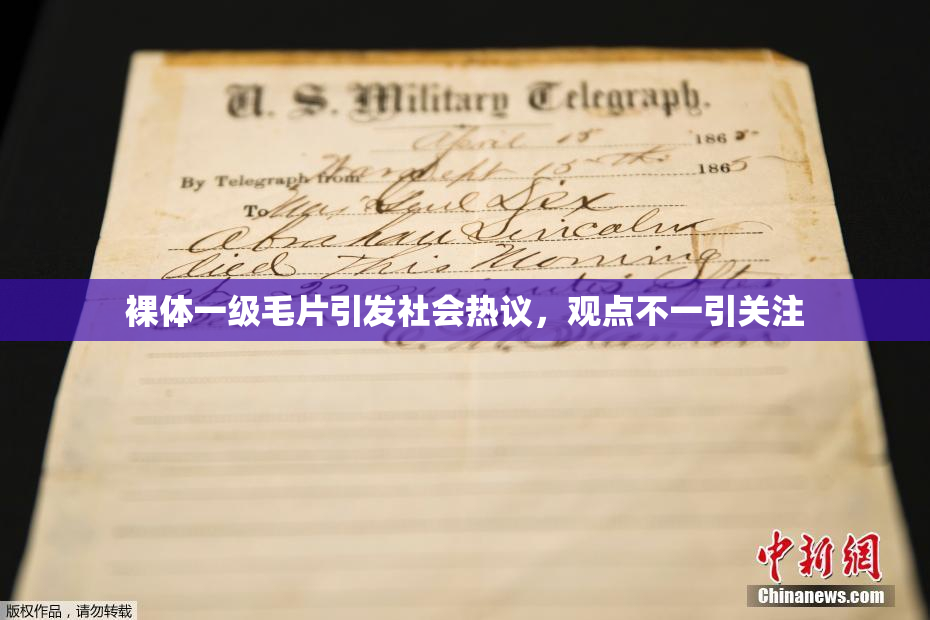 U. S. Military Telegraph.
April 15 1865
By Telegraph from War Dept 15th 1865
To Maj Genl Dix
Abraham Lincoln
died This Morning
22 minutes after
裸体一级毛片引发社会热议，观点不一引关注
中新網
Chinanews.com
版权作品，请勿转载